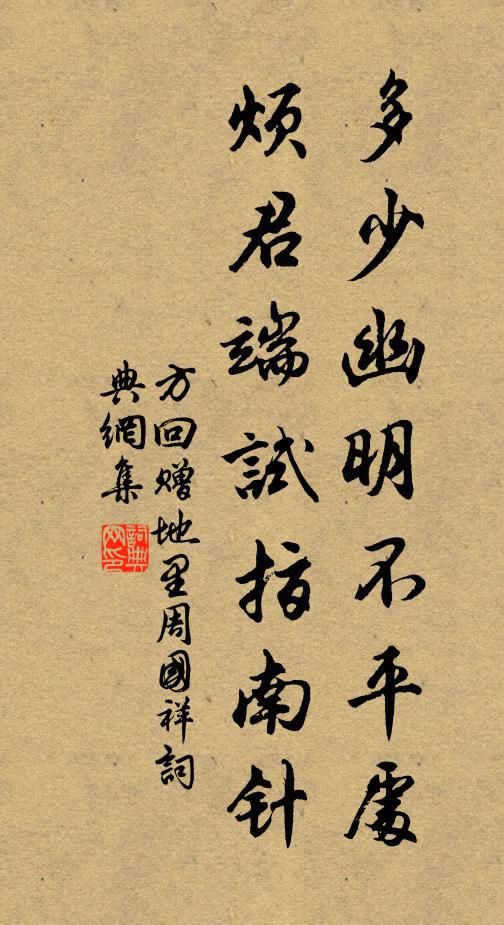 多少幽明不平處
煩君端試指南针
方回赠地里周國祥詞
典網集
詞典
网印